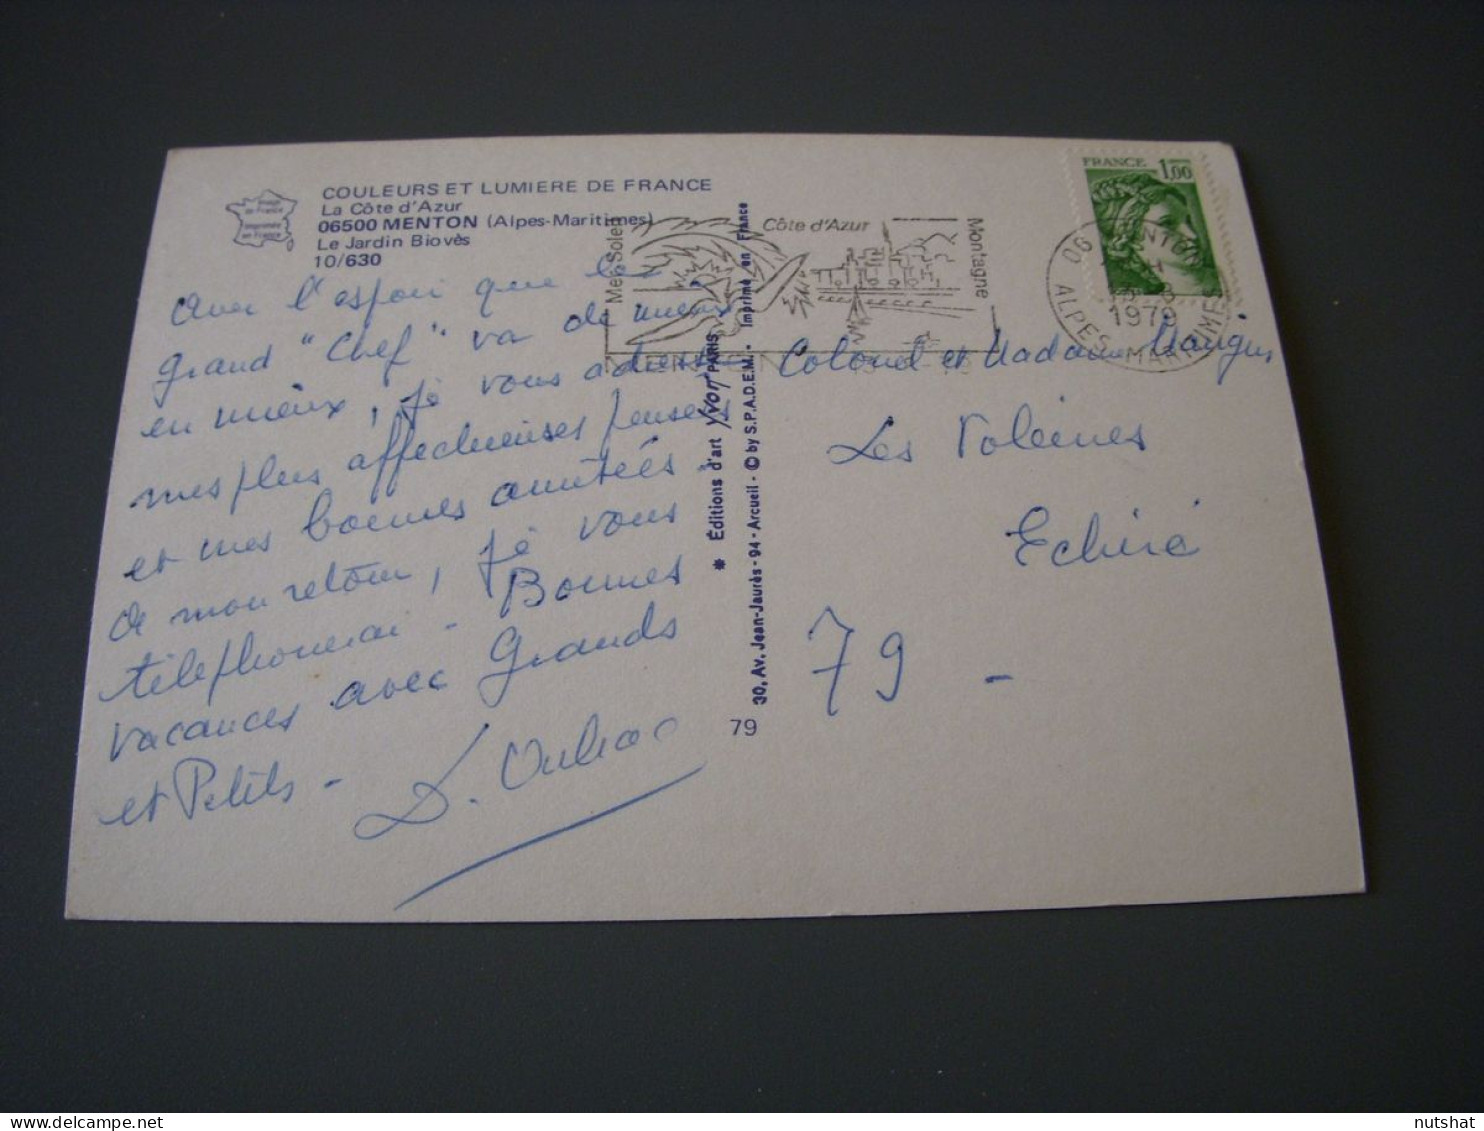 COULEURS ET LUMIERE DE FRANCE
La Côte d'Azur
06500 MENTON (Alpes-Maritimes)
Le Jardin Biovès
10/630
Image de France
Imprimée en France
Avec l'espoir que le
grand "Chef" va de mieux
en mieux, je vous adresse
mes plus affectueuses pensées
et mes bonnes amitiés -
De mon retour, je vous
téléphonerai - Bonnes
vacances avec Grands
et Petits -
Mer Soleil
Côte d'Azur
Montagne
MENTON
FRANCE 1,00
06 MENTON
1979
ALPES MARITIMES
✱ Éditions d'art Yvon PARIS
30, Av. Jean-Jaurès - 94 - Arcueil - © by S.P.A.D.E.M. • Imprimé en France
79
Colonel et Madame
Les
Echiré
79 -
nutshat